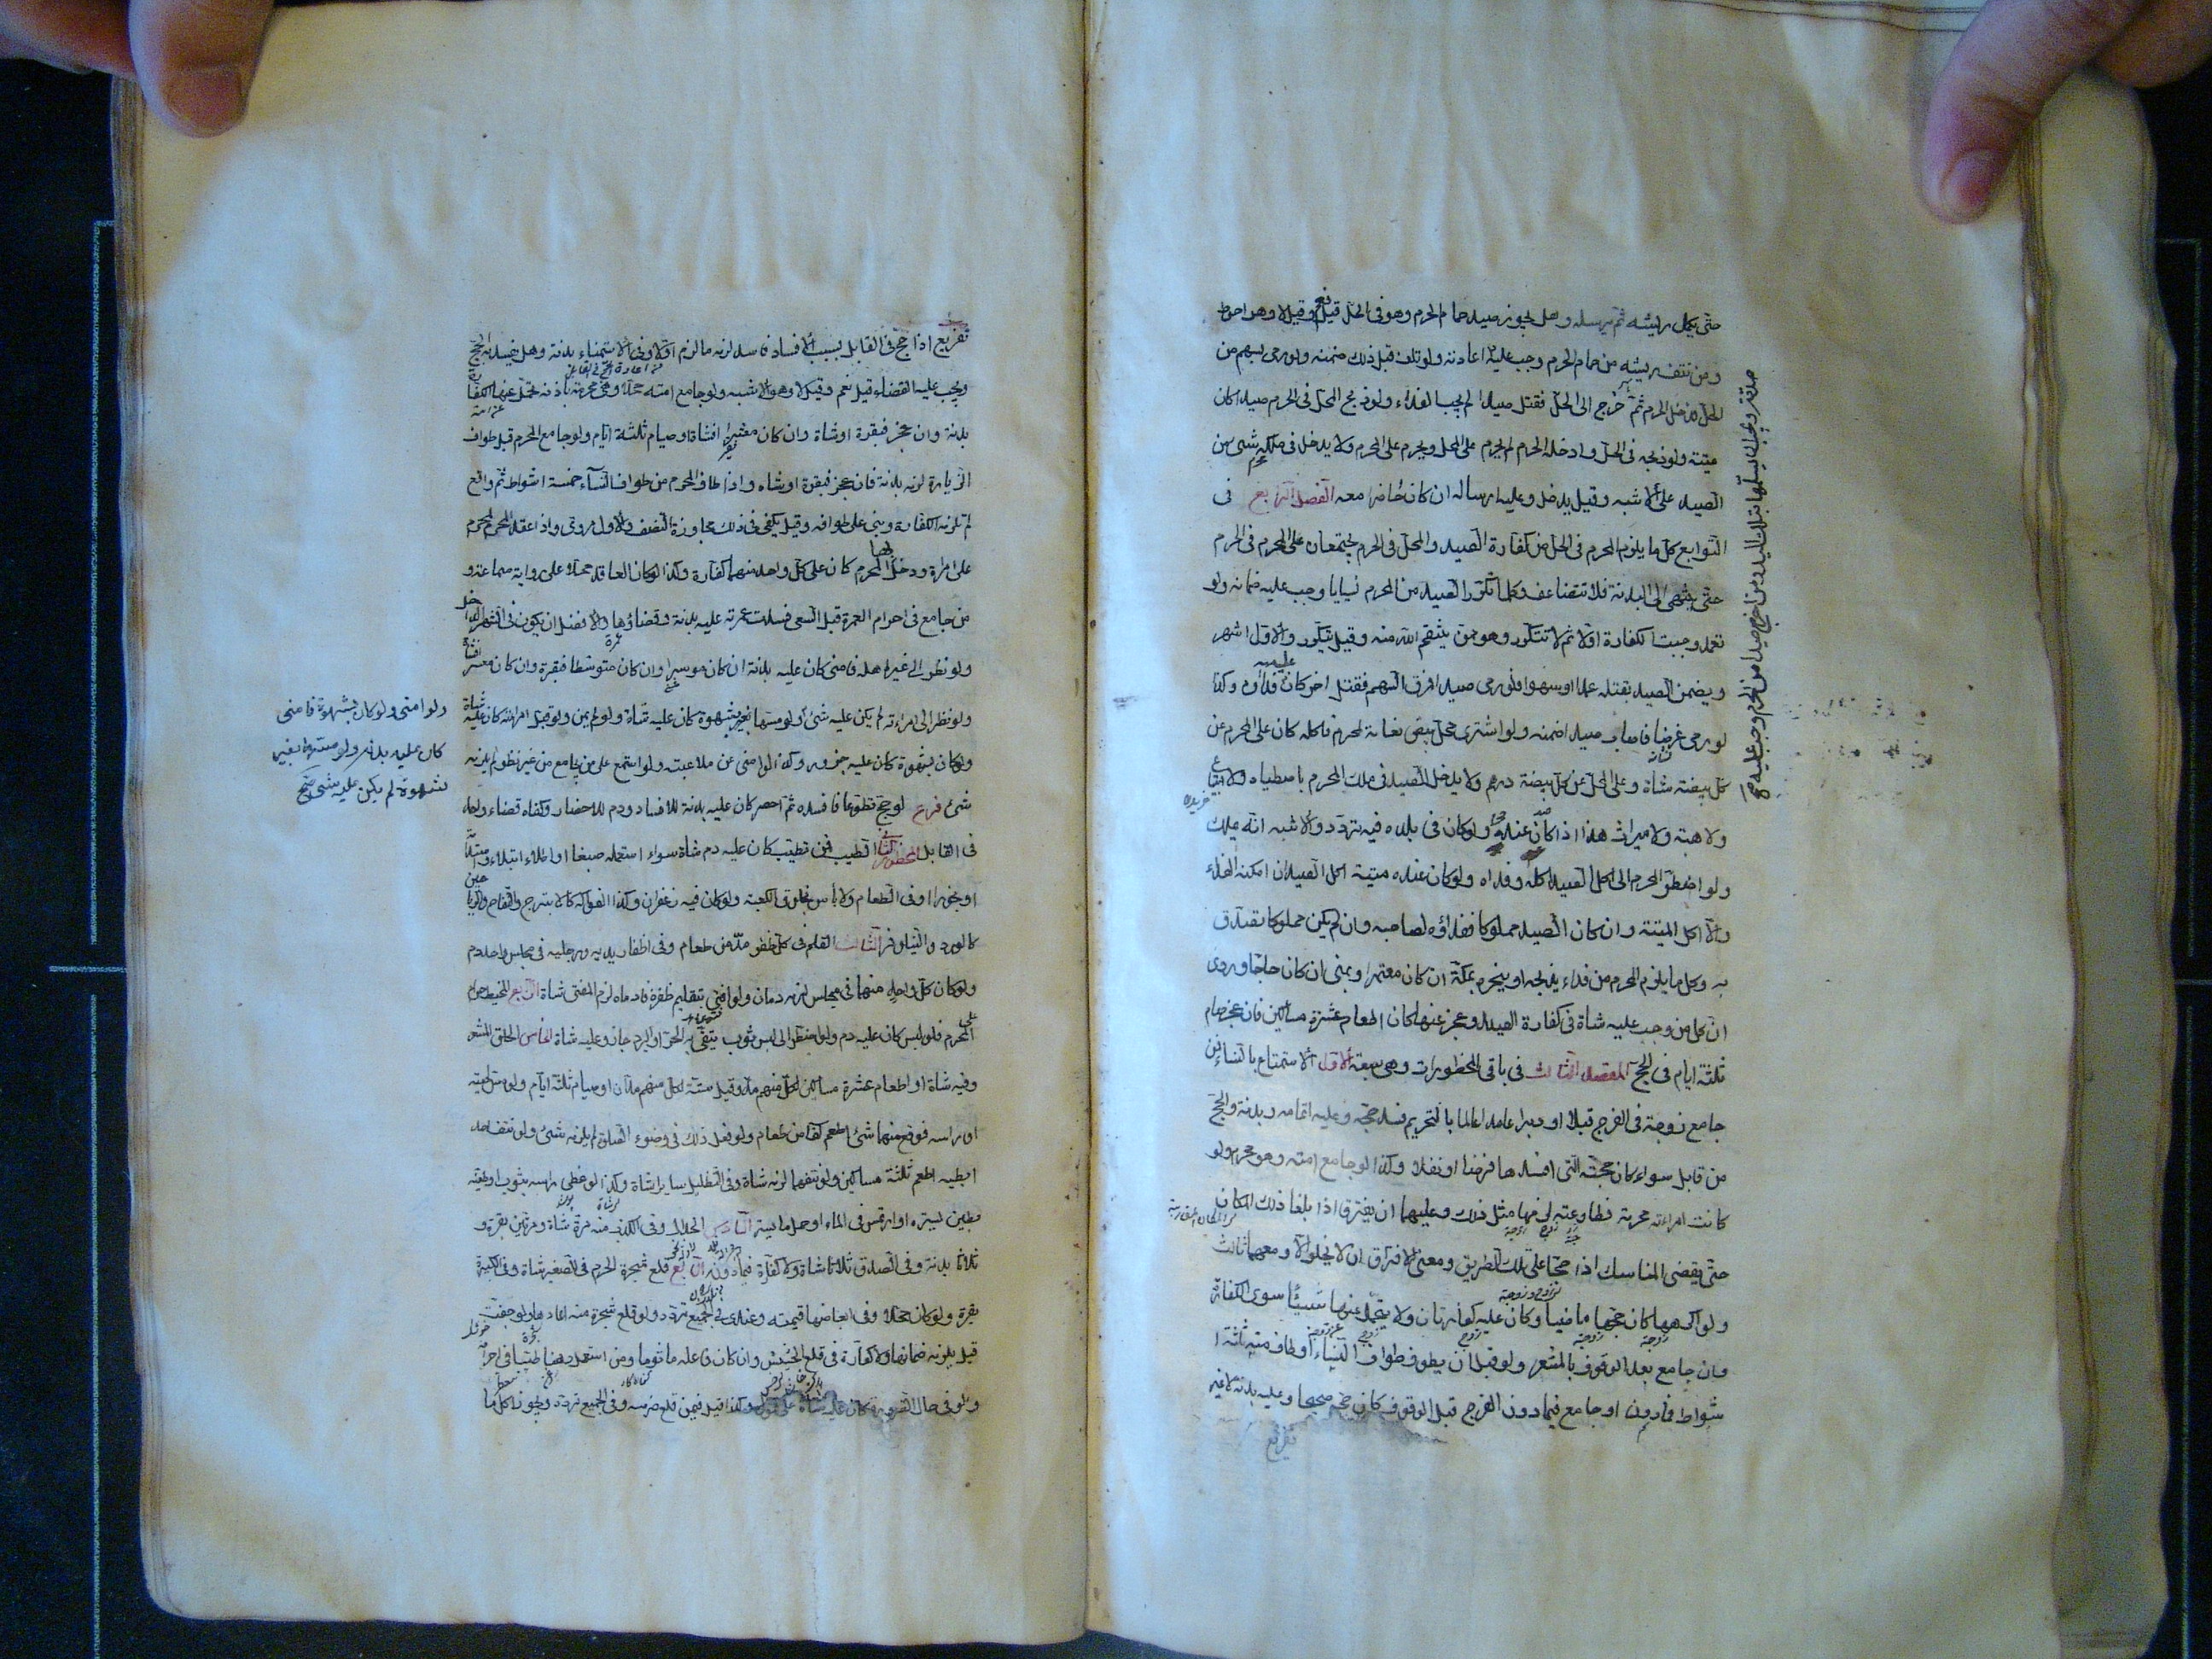 حتى يكمل ريشه ثم يرسله وهل يجوز صيد حمام الحرم وهو في الحل قيل نعم وقيل لا وهو احوط
ومن نتف ريشه من حمام الحرم وجب عليه اعادته ولو تلف قبل ذلك ضمنه ولو رمى بسهم من
الحل فدخل الحرم ثم خرج الى الحل فقتل صيدا لم يجب الفداء ولو ذبح المحل في الحرم صيدا كان
ميتة ولو ذبحه في الحل وادخله الحرم لم يحرم على المحل ويحرم على المحرم ولا يدخل في ملكه شئ من
الصيد على الاشبه وقيل يدخل وعليه ارساله ان كان حاضرا معه الفصل الرابع في
التوابع كل ما يلزم المحرم في الحل من كفارة الصيد والمحل في الحرم يجتمعان على المحرم في الحرم
حتى ينتهى الى البدنة فلا تتضاعف وكلما تكرر الصيد من المحرم نسيانا وجب عليه ضمانه ولو
تعمد وجبت الكفارة اولا ثم لا تتكرر وهو ممن ينتقم الله منه وقيل يتكرر والاول اشهر
ويضمن الصيد بقتله عمدا او سهوا فلو رمى صيدا فمرق السهم فقتل اخر كان عليه فداؤه وكذا
لو رمى غرضا فاصاب صيدا ضمنه ولو اشترى محل بيض نعامة لمحرم فاكله كان على المحرم عن
كل بيضة شاة وعلى المحل عن كل بيضة درهم ولا يدخل الصيد في ملك المحرم باصطياد ولا ابتياع
ولا هبة ولا ميراث هذا اذا كان عنده ولو كان في بلده فيه تردد والاشبه انه يملك
ولو اضطر المحرم الى اكل الصيد اكله وفداه ولو كان عنده ميتة اكل الصيد ان امكنه الفداء
والا اكل الميتة وان كان الصيد مملوكا ففداؤه لصاحبه وان لم يكن مملوكا تصدق
به وكل ما يلزم المحرم من فداء يذبحه او ينحره بمكة ان كان معتمرا وبمنى ان كان حاجا وروى
ان كل من وجب عليه شاة في كفارة الصيد وعجز عنها كان اطعام عشرة مساكين فان عجز صام
ثلثة ايام في الحج المقصد الثالث في باقى المحظورات وهي سبعة الاول الاستمتاع بالنساء فمن
جامع زوجته في الفرج قبلا او دبرا عامدا عالما بالتحريم فسد حجه وعليه اتمامه وبدنة والحج
من قابل سواء كان حجته التى افسدها فرضا او نفلا وكذا لو جامع امته وهو محرم ولو
كانت امراته محرمة فطاوعته لزمها مثل ذلك وعليهما ان يفترقا اذا بلغا ذلك المكان
حتى يقضى المناسك اذا حجا على تلك الطريق ومعنى الافتراق ان لا يخلوا الا ومعهما ثالث
ولو اكرهها كان حجها ماضيا وكان عليه كفارتان ولا يتحمل عنها شيئا سوى الكفارة
وان جامع بعد الوقوف بالمشعر ولو قبل ان يطوف طواف النساء او طاف منه ثلثة ا
شواط فما دون او جامع فيما دون الفرج قبل الوقوف كان حجه صحيحا وعليه بدنة لا غير
تفريع
صدقة ويجب ان يسلمها بتلك اليد ومن اخرج صيدا من الحرم وجب عليه
تفريع اذا حج في القابل بسبب الافساد فافسد لزمه ما لزم اولا وفي الاستمناء بدنة وهل يفسد به الحج
ويجب عليه القضاء قيل نعم وقيل لا وهو الاشبه ولو جامع امته محلا وهي محرمة باذنه تحمل عنها الكفارة
بدنة وان عجز فبقرة او شاة وان كان معسرا فشاة او صيام ثلثة ايام ولو جامع المحرم قبل طواف
الزيارة لزمه بدنة فان عجز فبقرة او شاه واذا طاف المحرم من طواف النساء خمسة اشواط ثم واقع
لم تلزمه الكفارة وبنى على طوافه وقيل يكفى في ذلك مجاوزة النصف والاول مروى واذا عقد المحرم لمحرم
على امراة ودخل بها المحرم كان على كل واحد منهما كفارة وكذا لو كان العاقد محلا على رواية سماعة و
من جامع في احرام العمرة قبل السعى فسدت عمرته عليه بدنة وقضاؤها والافضل ان يكون في الشهر الداخل
ولو نظر الى غير اهله فامنى كان عليه بدنة ان كان موسرا وان كان متوسطا فبقرة وان كان معسرا فشاة
ولو نظر الى امراته لم يكن عليه شئ ولو مسها بغير شهوة كان عليه شاة ولو لم يمن ولو قبل امراته كان عليه شاة
ولو كان بشهوة كان عليه جزور وكذا لو امنى عن ملاعبة ولو استمع على من يجامع من غير نظر لم يلزمه
شئ فرع لو حج تطوعا فافسده ثم احصر كان عليه بدنة للافساد ودم للاحصار وكفاه قضاء واحد
في القابل المحظور الثاني الطيب فمن تطيب كان عليه دم شاة سواء استعمله صبغا او اطلاء ابتداء واستدامة
او بخورا او في الطعام ولا باس بخلوق الكعبة ولو كان فيه زعفران وكذا الفواكه كالاترج والتفاح والرياحين
كالورد والنيلوفر الثالث القلم في كل ظفر مد من طعام وفي اظفار يديه ورجليه في مجلس واحد دم
ولو كان كل واحد منهما في مجلس لزمه دمان ولو افتى بتقليم ظفره فادماه لزم المفتى شاة الرابع المخيط حرام
على المحرم فلو لبس كان عليه دم ولو اضطر الى لبس ثوب يتقى به الحر او البرد جاز وعليه شاة الخامس الحلق الشعر
وفيه شاة او اطعام عشرة مساكين لكل منهم مد وقيل ستة لكل منهم مدان او صيام ثلثة ايام ولو مس لحيته
او راسه فوقع منهما شئ اطعم كفا من طعام ولو فعل ذلك في وضوء الصلوة لم يلزمه شئ ولو نتف احد
ابطيه اطعم ثلثة مساكين ولو نتفهما لزمه شاة وفي التظليل سايرا شاة وكذا لو غطى راسه بثوب او طينه
بطين يستره او ارتمس في الماء او حمل ما يستره السادس الجدال وفي الكذب منه مرة شاة ومرتين بقرة و
ثلاثا بدنة وفي الصدق ثلاثا شاة ولا كفارة فيما دونه السابع قلع شجرة الحرم في الصغيرة شاة وفي الكبيرة
بقرة ولو كان محلا وفي ابعاضها قيمته وعندى في الجميع تردد ولو قلع شجرة منه اعادها ولو جفت
قيل يلزمه ضمانها ولا كفارة في قلع الحشيش وان كان فاعله ماثوما ومن استعمل دهنا طيبا في احرامه
ولو في حال الضرورة كان عليه شاة على قول وكذا قيل فيمن قلع ضرسه وفي الجميع تردد ويجوز اكل ما
ولو امنى ولو كان بشهوة فامنى
كان عليه بدنة ولو مسها بغير
شهوة لم يكن عليه شئ صح